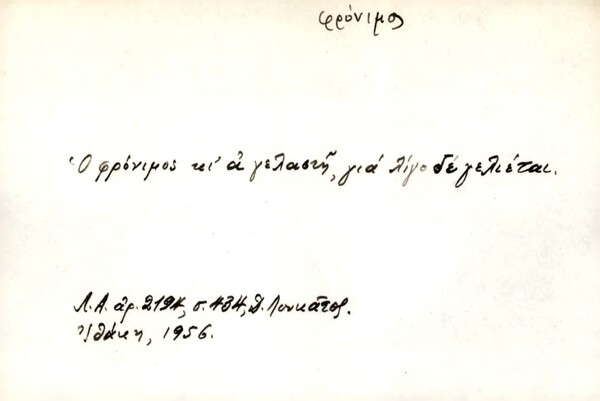 φρόνιμος
Ὁ φρόνιμος κι' ἂ γελαστῆ, γιά λίγο δέ γελιέται.
Λ.Α. ἀρ. 2194, σ. 434, Δ. Λουκᾶτος.
Ἰθάκη, 1956.